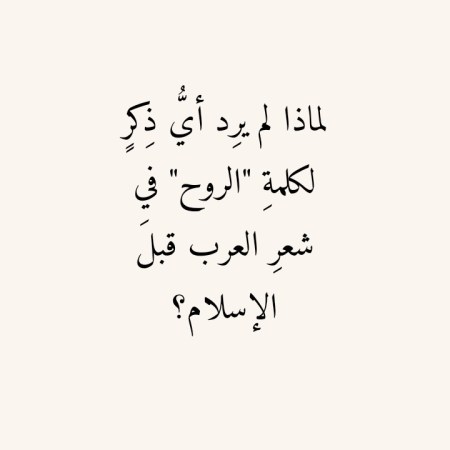 لماذا لم يرِد أيُّ ذِكرٍ
لكلمةِ "الروح" في
شعرِ العرب قبلَ
الإسلام؟